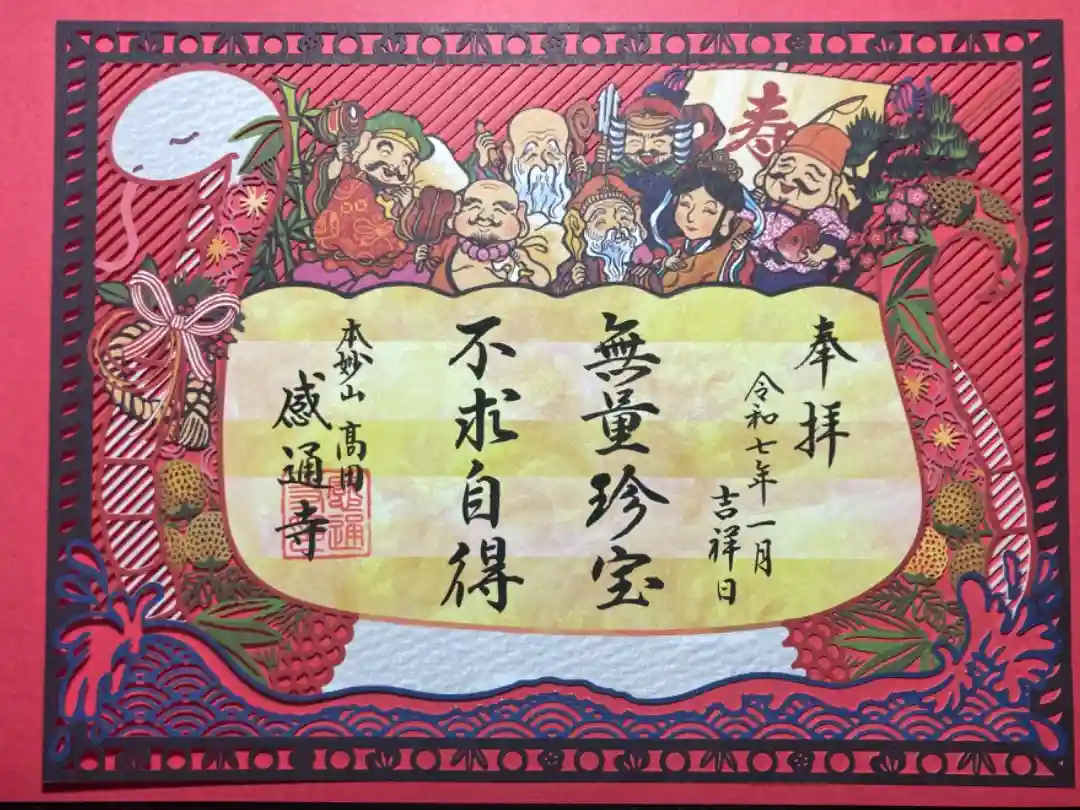 寿
奉拝
令和七年一月
吉祥日
無量珍宝
不求自得
本妙山 高田
感通寺